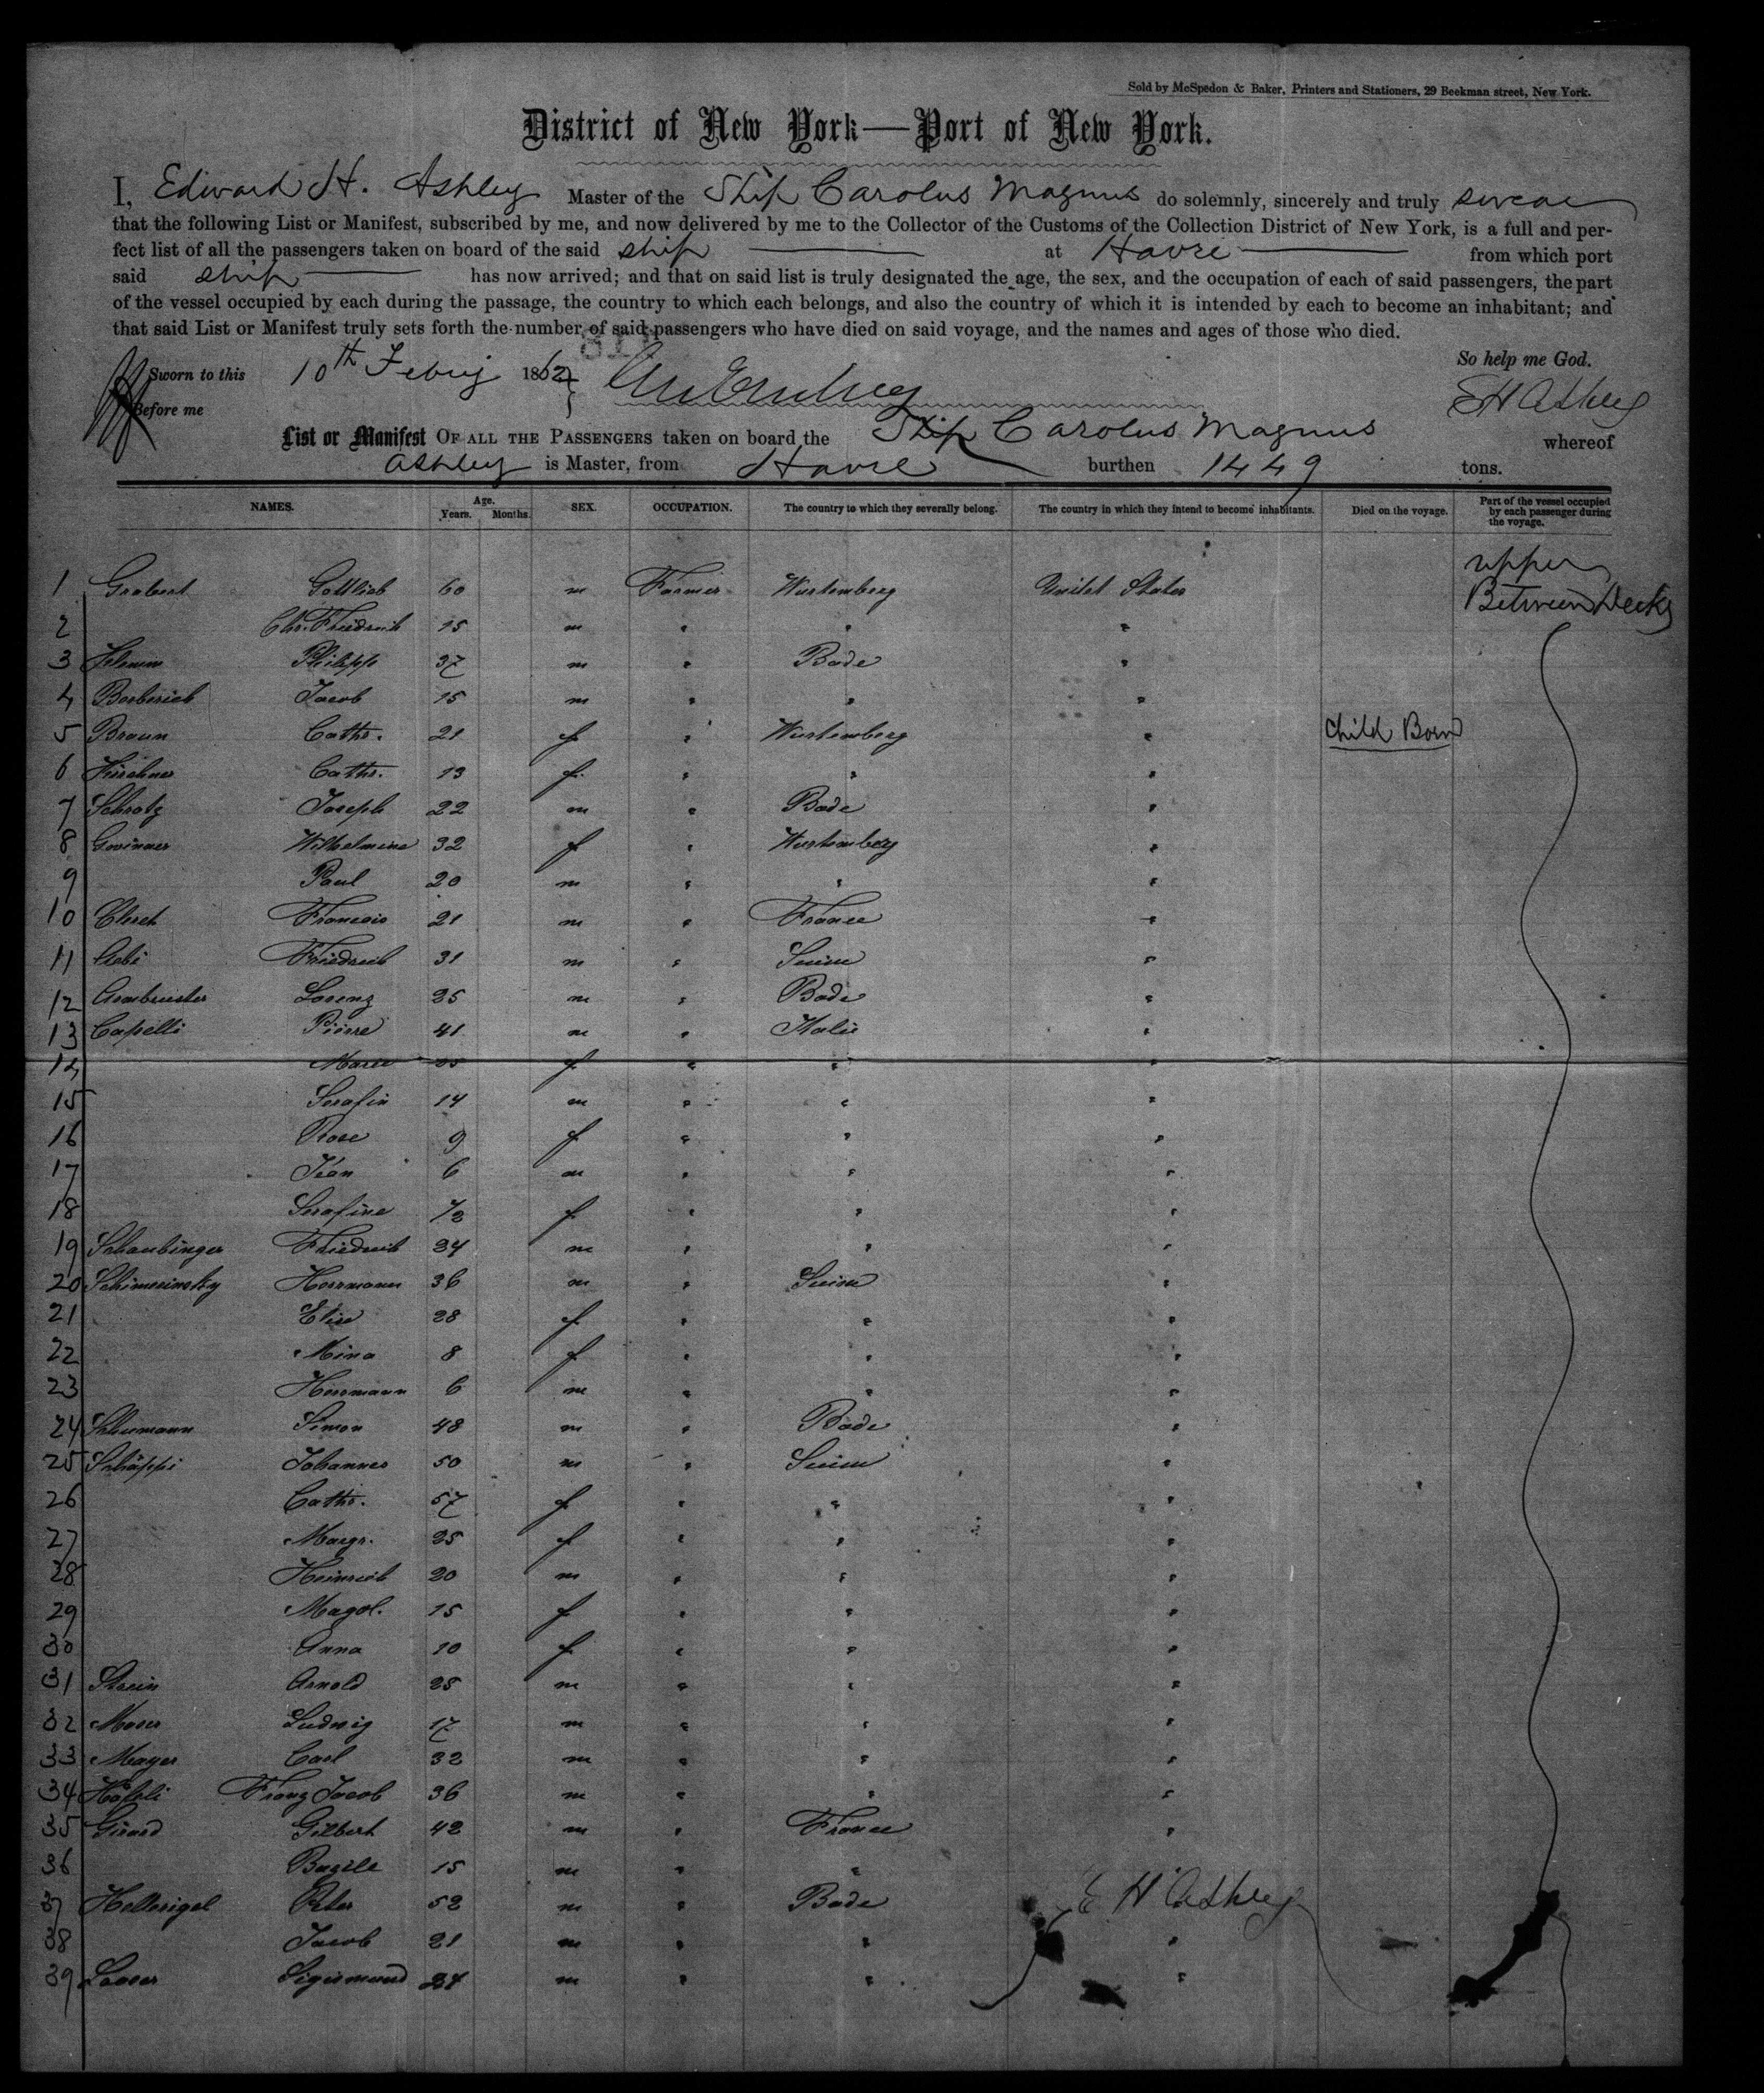 Sold by McSpedon & Baker, Printers and Stationers, 29 Beekman street, New York.
District of New York—Port of New York.
I, Edward H. Ashley Master of the Ship Carolus Magnus do solemnly, sincerely and truly swear
that the following List or Manifest, subscribed by me, and now delivered by me to the Collector of the Customs of the Collection District of New York, is a full and per-
fect list of all the passengers taken on board of the said ship at Havre from which port
said ship has now arrived; and that on said list is truly designated the age, the sex, and the occupation of each of said passengers, the part
of the vessel occupied by each during the passage, the country to which each belongs, and also the country of which it is intended by each to become an inhabitant; and
that said List or Manifest truly sets forth the number of said passengers who have died on said voyage, and the names and ages of those who died.
So help me God.
Sworn to this 10th 1862
Before me
E H Ashley
List or Manifest OF ALL THE PASSENGERS taken on board the Ship Carolus Magnus whereof
Ashley is Master, from Havre burthen 1449 tons.
NAMES. Age. Years. Months. SEX. OCCUPATION. The country to which they severally belong. The country in which they intend to become inhabitants. Died on the voyage. Part of the vessel occupied by each passenger during the voyage.
upper
1 Gottlieb 60 m Farmer Wurtemberg United States Between Decks
2 Chr. Friedrich 15 m " " "
3 Philipp 37 m " Bade "
4 Jacob 15 m " " "
5 Braun Cathr. 21 f " Wurtemberg " Child Born
6 Kirchner Cathr. 13 f " " "
7 Schrotz Joseph 22 m " Bade "
8 Wilhelmine 32 f " Wurtemberg "
9 Paul 20 m " " "
10 Francois 21 m " France "
11 Aebi Friedrich 31 m " Suisse "
12 Armbruster Lorenz 25 m " Bade "
13 Capelli Pierre 41 m " Italie "
14 Marie f " " "
15 Serafin 14 m " " "
16 Rose 9 f " " "
17 Jean 6 m " " "
18 Serafine 1/2 f " " "
19 Schaubinger Friedrich 24 m " " "
20 Herrmann 36 m " Suisse "
21 Elise 28 f " " "
22 Mina 8 f " " "
23 Herrmann 6 m " " "
24 Simon 48 m " Bade "
25 Schäppi Johannes 50 m " Suisse "
26 Cathr. 57 f " " "
27 Margr. 25 f " " "
28 Heinrich 20 m " " "
29 Magd. 15 f " " "
30 Anna 10 f " " "
31 Arnold 25 m " " "
32 Moser Ludwig 17 m " " "
33 Mayer Carl 32 m " " "
34 Franz Jacob 36 m " " "
35 Girard Gilbert 42 m " France "
36 15 m " "
37 Hellerigel Peter 52 m " Bade E H Ashley
38 Jacob 21 m " " "
39 Sigismund 24 m " " "